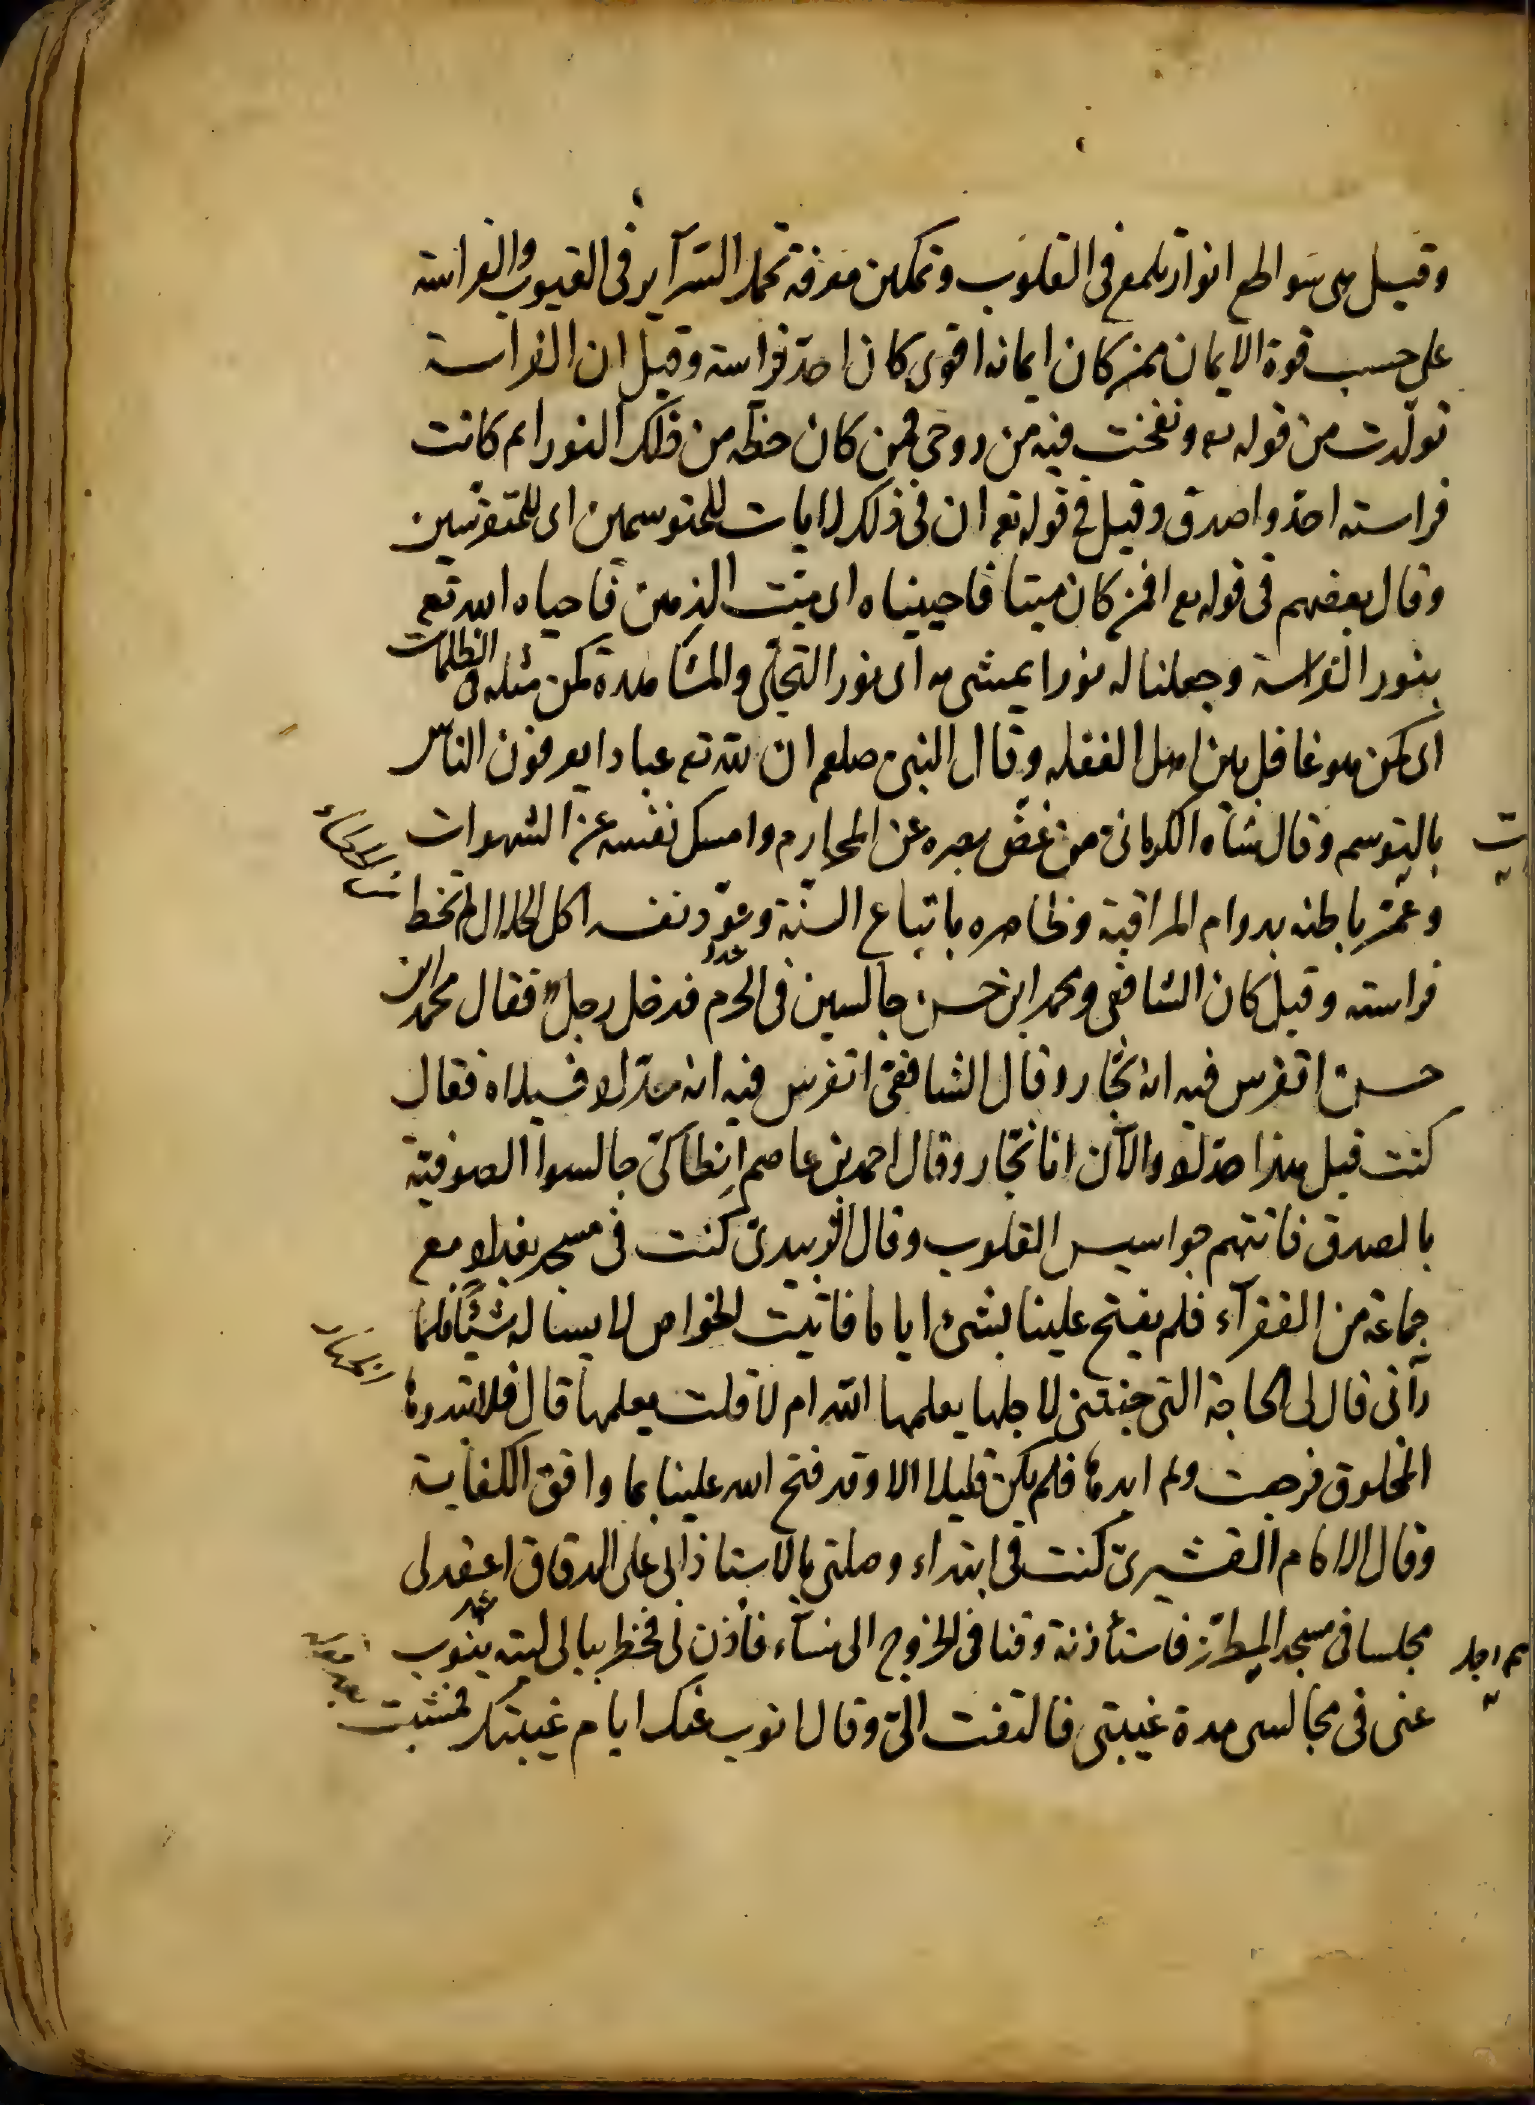 وقيل هى سواطع انوار تلمع فى القلوب وتمكين معرفة تحمل السرآير فى الغيوب والفراسة
على حسب قوة الايمان فمن كان ايمانه اقوى كان احدّ فراسة وقيل ان الفراسة
تولدت من قوله تع ونفخت فيه من روحى فمن كان حظه من ذلك النور اتم كانت
فراسته احدّ واصدق وقيل فى قوله تع ان فى ذلك لايات للمتوسمين اى للمتفرسين
وقال بعضهم فى قوله تع افمن كان ميتا فاحييناه اى ميت الذهن فاحياه الله تع
بنور الفراسة وجعلنا له نورا يمشى به اى نور التجلى والمشاهدة كمن مثله فى الظلمات
اى كمن هو غافل بين اهل الغفله وقال النبى صلعم ان لله تع عبادا يعرفون الناس
بالتوسم وقال شاه الكرمانى من غض بصره عن المحارم وامسك نفسه عن الشهوات
وعمّر باطنه بدوام المراقبة وظاهره باتباع السنّة وعوّد نفسه اكل الحلال لم تخط
فراسته وقيل كان الشافعى ومحمد ابن حسن جالسين فى الحرم فدخل رجل فقال محمد ابن
حسن اتفرس فيه انه نجّار وقال الشافعى اتفرس فيه انه حدّاد فسيلاه فقال
كنت قبل هذا حدّادا والآن انا نجّار وقال احمد بن عاصم انطاكى جالسوا الصوفية
بالصدق فانهم جواسيس القلوب وقال الزبيدى كنت فى مسجد بغداد مع
جماعة من الفقرآء فلم يفتح علينا بشئ اياما فاتيت الخواص لا يسئاله شيئا فلما
رآنى قال لى الحاجة التى جئتنى لاجلها يعلمها الله ام لا قلت يعلمها قال فلا تبدها
المخلوق فرجعت ولم ابدها فلم يكن قليلا الا وقد فتح الله علينا بما وافق الكفاية
وقال الامام القشيرى كنت فى ابتداء وصلتى بالاستاذ ابى على الدقاق اعقد لى
مجلسا فى مسجد المطرّز فاستأذنة وقتا فى الخروج الى نسآء فأذن لى فخطر ببالى ليته ينوب
عنى فى مجالسى مدة غيبتى فالتفت الىّ وقال انوب عنك ايام غيبتك فمشيت